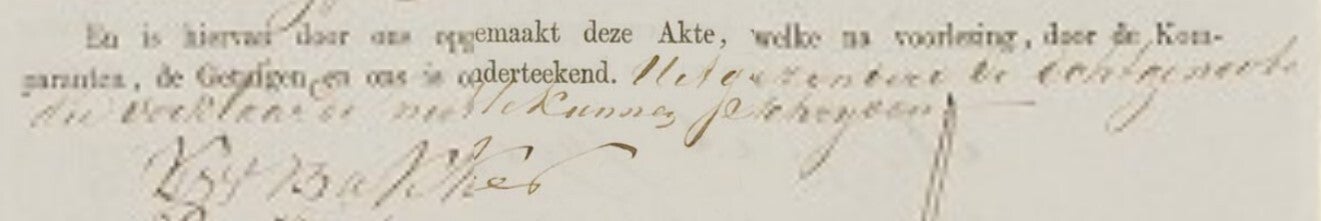 En is hiervan door ons opgemaakt deze Akte, welke na voorlezing, door de Kom-
paranten, de Getuigen en ons is onderteekend. Uitgezonderd de echtgenoote
die verklaarde niet te kunnen schryven
Bakker